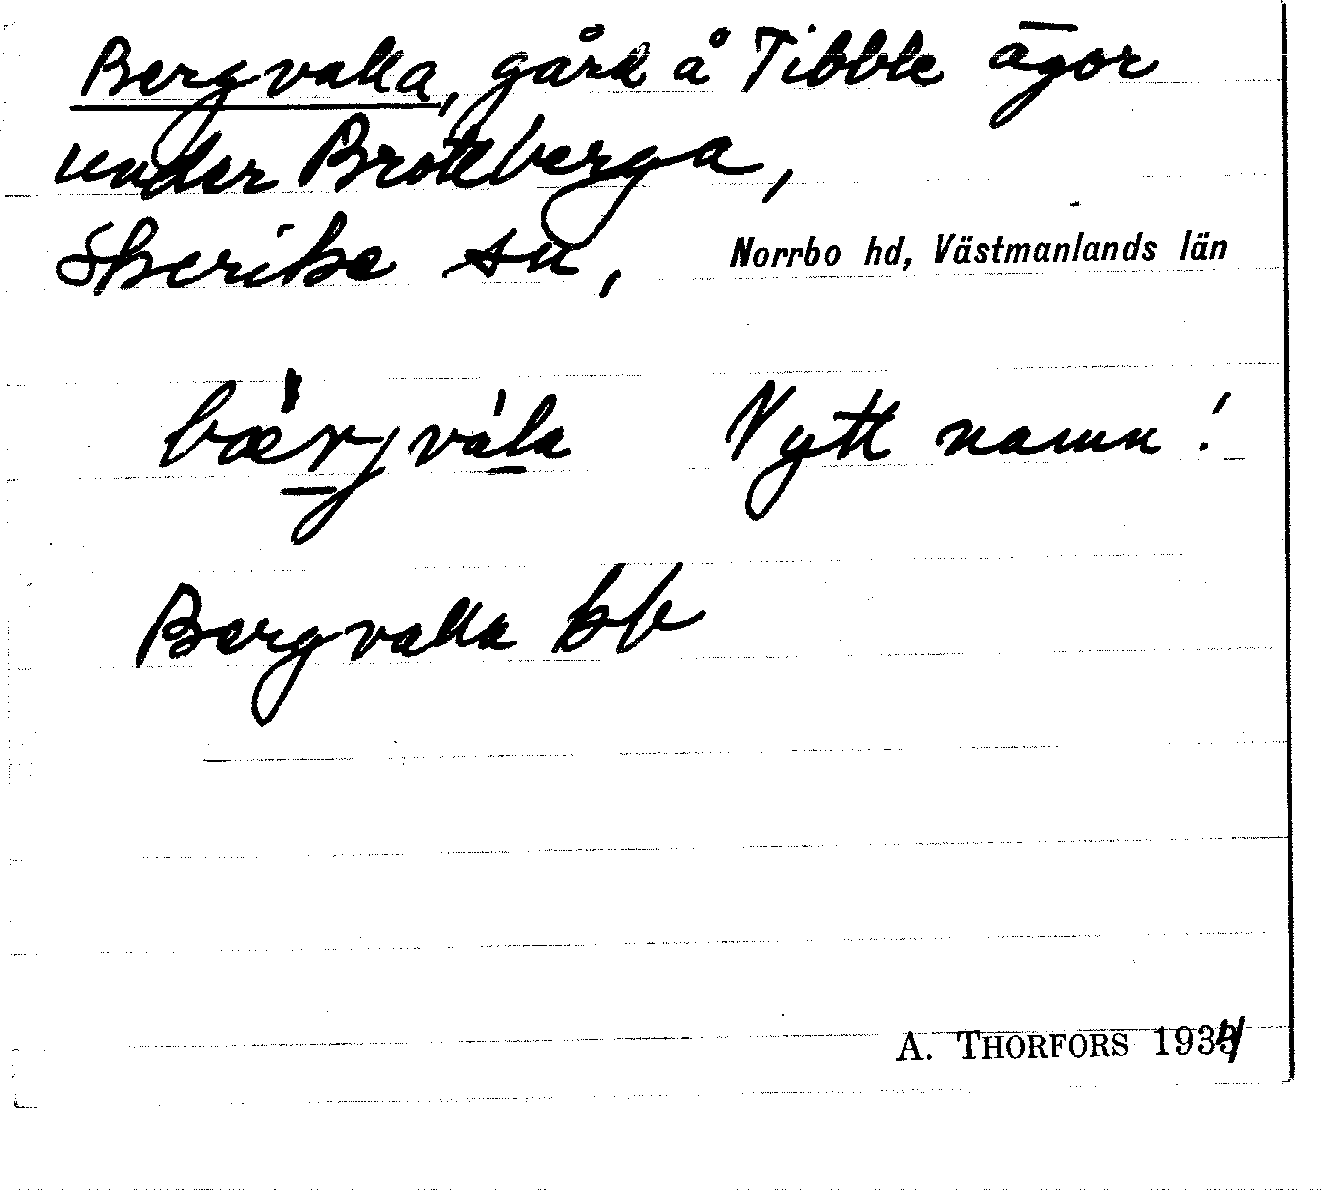 Bergvalla, gård å Tibble ägor
under Brottberga,
Skerike sn, Norrbo hd, Västmanlands län
bæ̀rjvála Nytt namn!
Bergvalla bb
A. THORFORS 1934